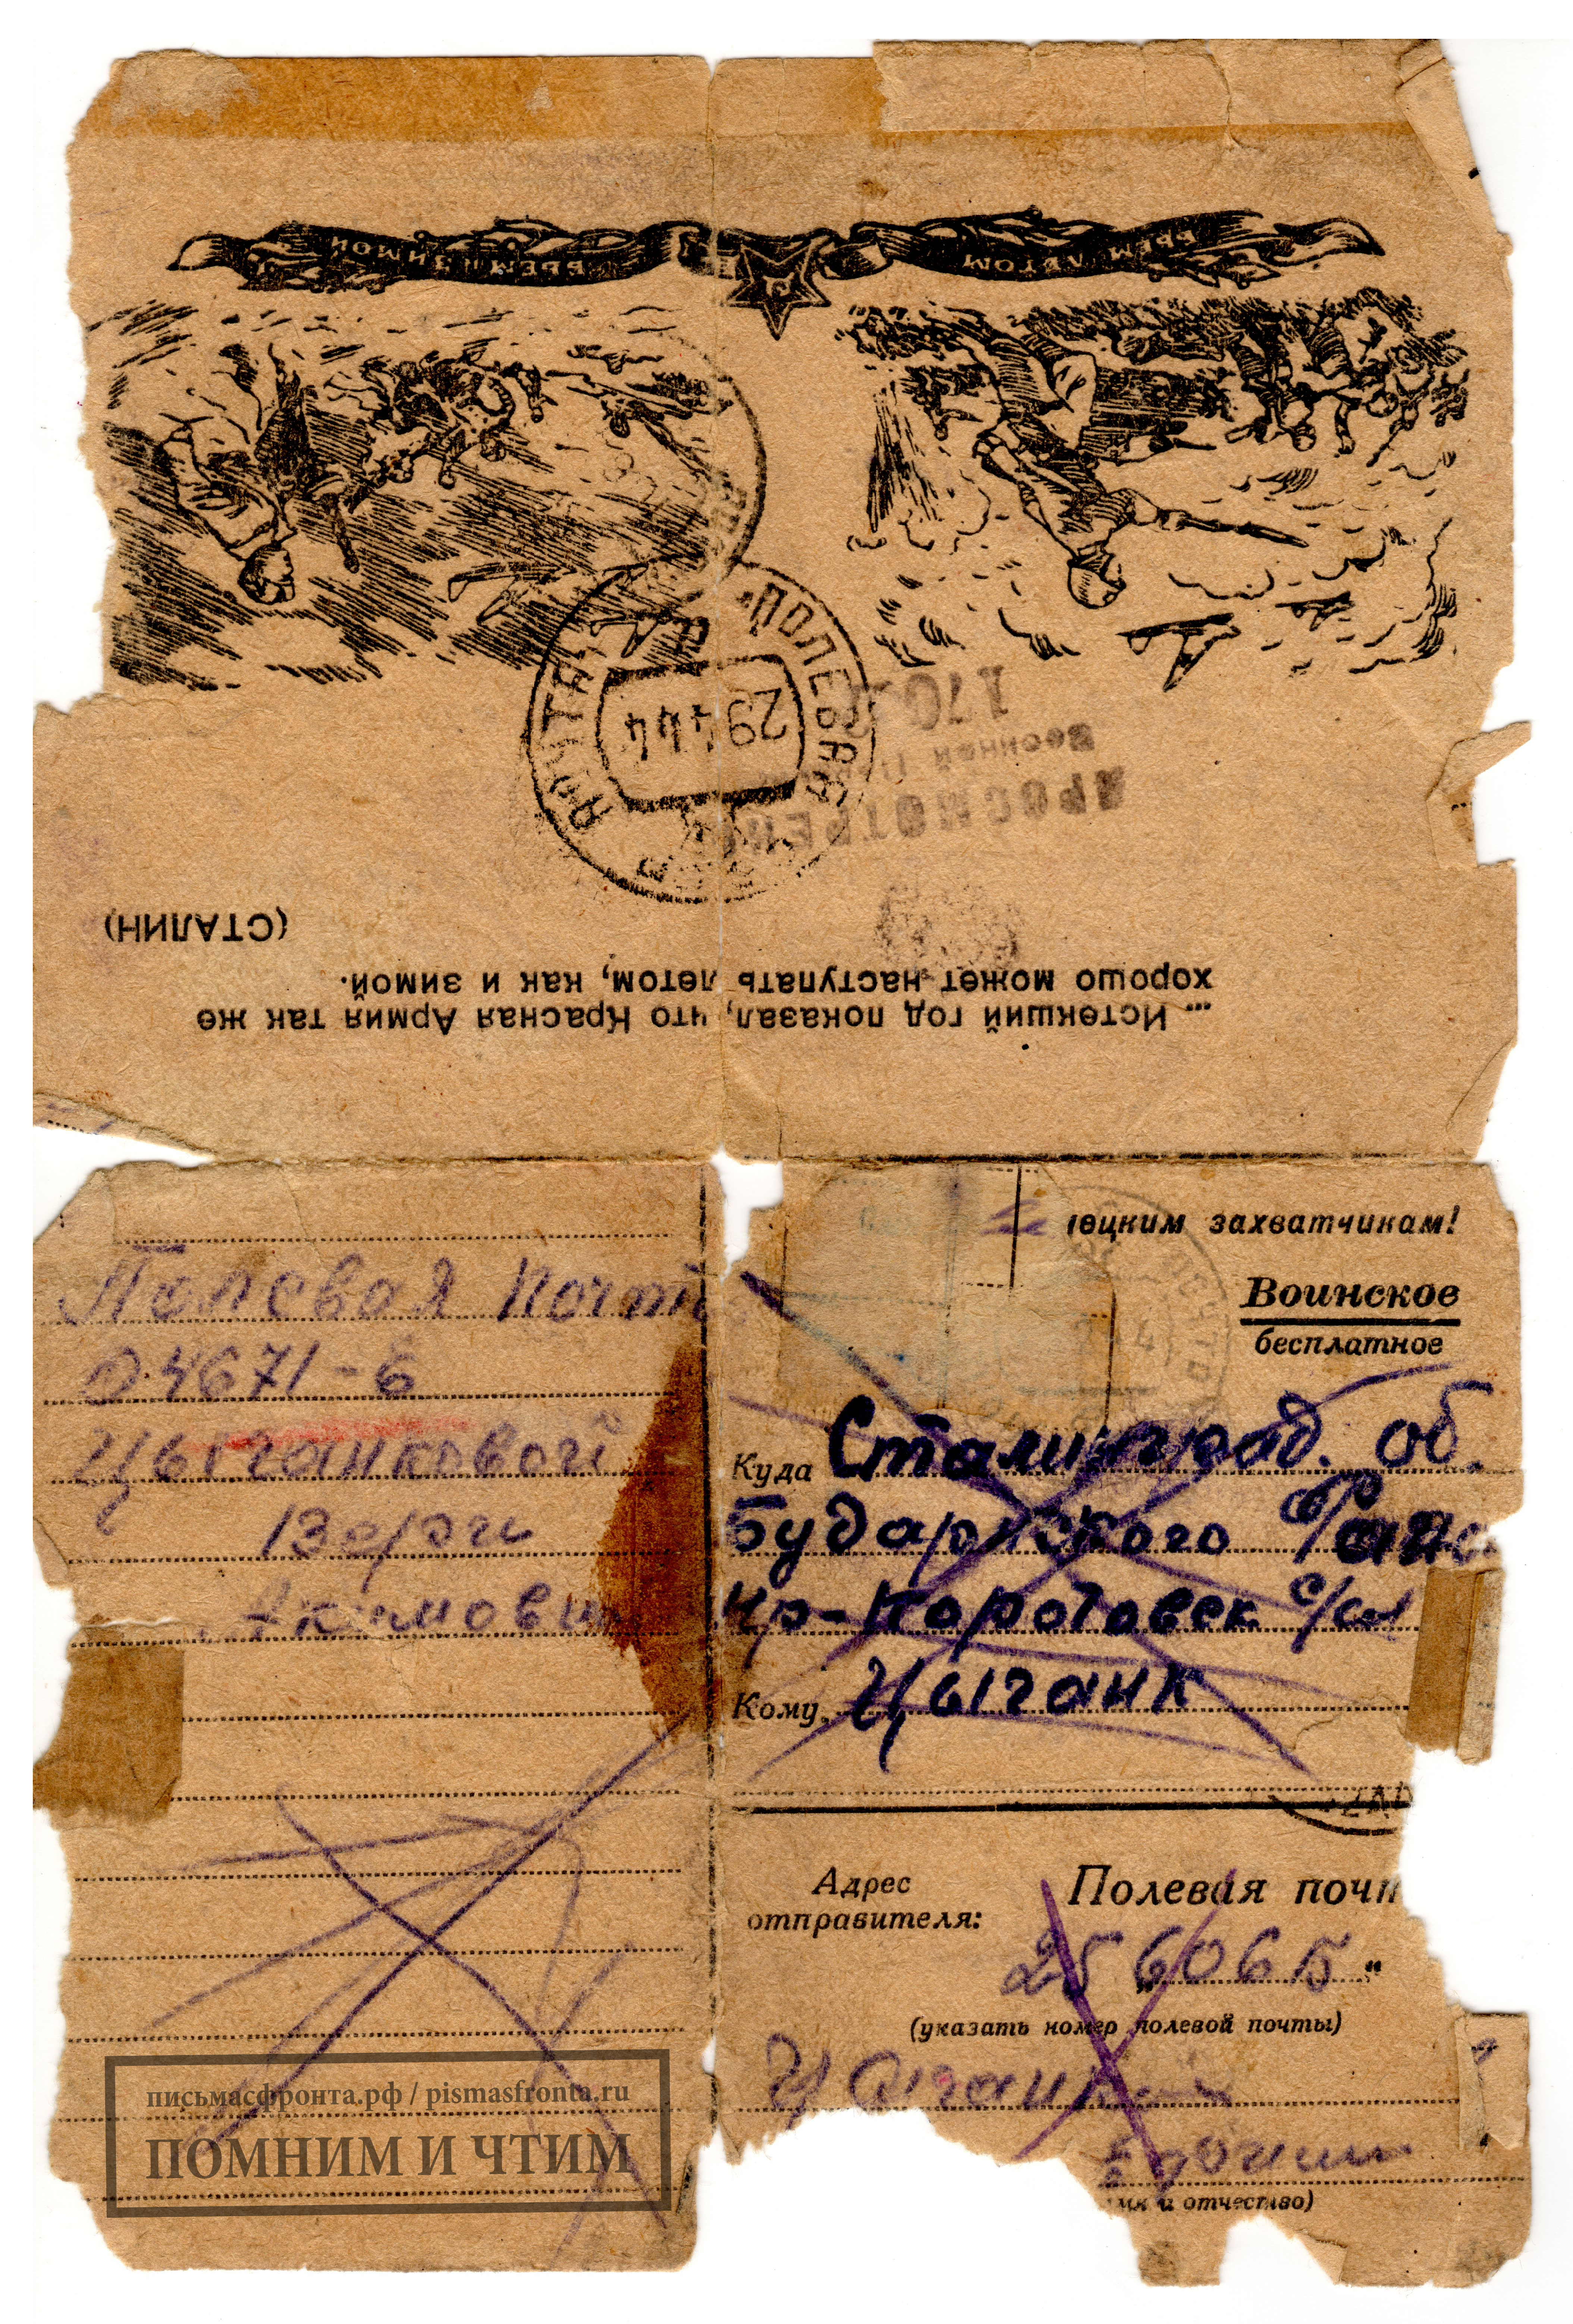 БЬЕМ ЛЕТОМ
БЬЕМ И ЗИМОЙ
ПОЛЕВАЯ ПОЧТА
29 4 44
ПРОСМОТРЕНО
Военной
... Истекший год показал, что Красная Армия так же
хорошо может наступать летом, как и зимой.
(СТАЛИН)
Полевая почт
04671-Б
Цыганковой
Акимови
ецким захватчикам!
Воинское
бесплатное
Куда Сталинград. об.
Бударинского
Кому Цыганк
Адрес
отправителя:
Полевая почт
25606 Б "
(указать номер полевой почты)
и отчество)
письмасфронта.рф / pismasfronta.ru
ПОМНИМ И ЧТИМ